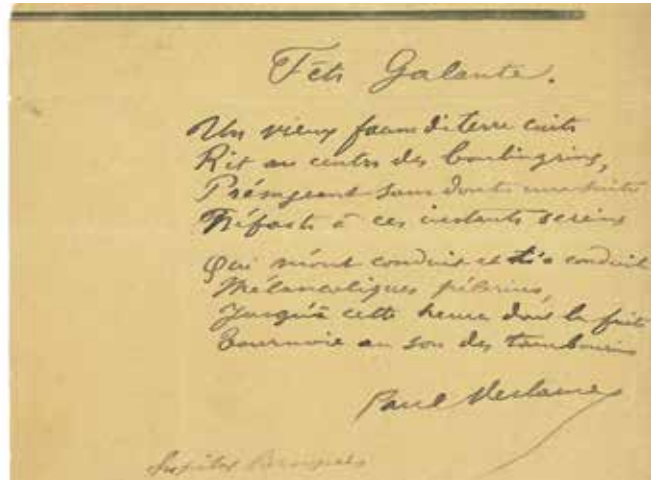 Fête Galante.
Un vieux faune de terre cuite
Rit au centre des boulingrins,
Présageant sans doute une suite
Néfaste à ces instants sereins
Qui m'ont conduit et t'a conduit
Mélancoliques pèlerins
Jusqu'à cette heure dont la fuite
Tournoie au son des tambourins
Paul Verlaine